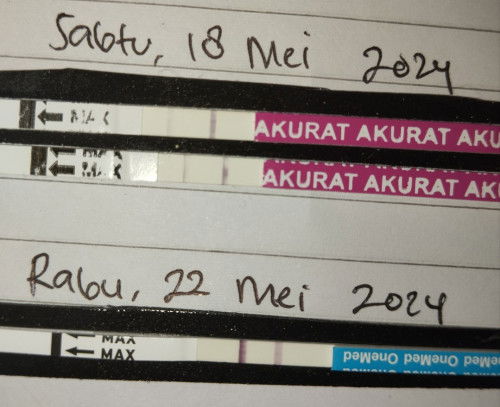 Sabtu, 18 Mei 2024
MAX AKURAT AKURAT AKU
MAX
MAX AKURAT AKURAT AK
Rabu, 22 Mei 2024
MAX
MAX OneMed OneMed OneMed